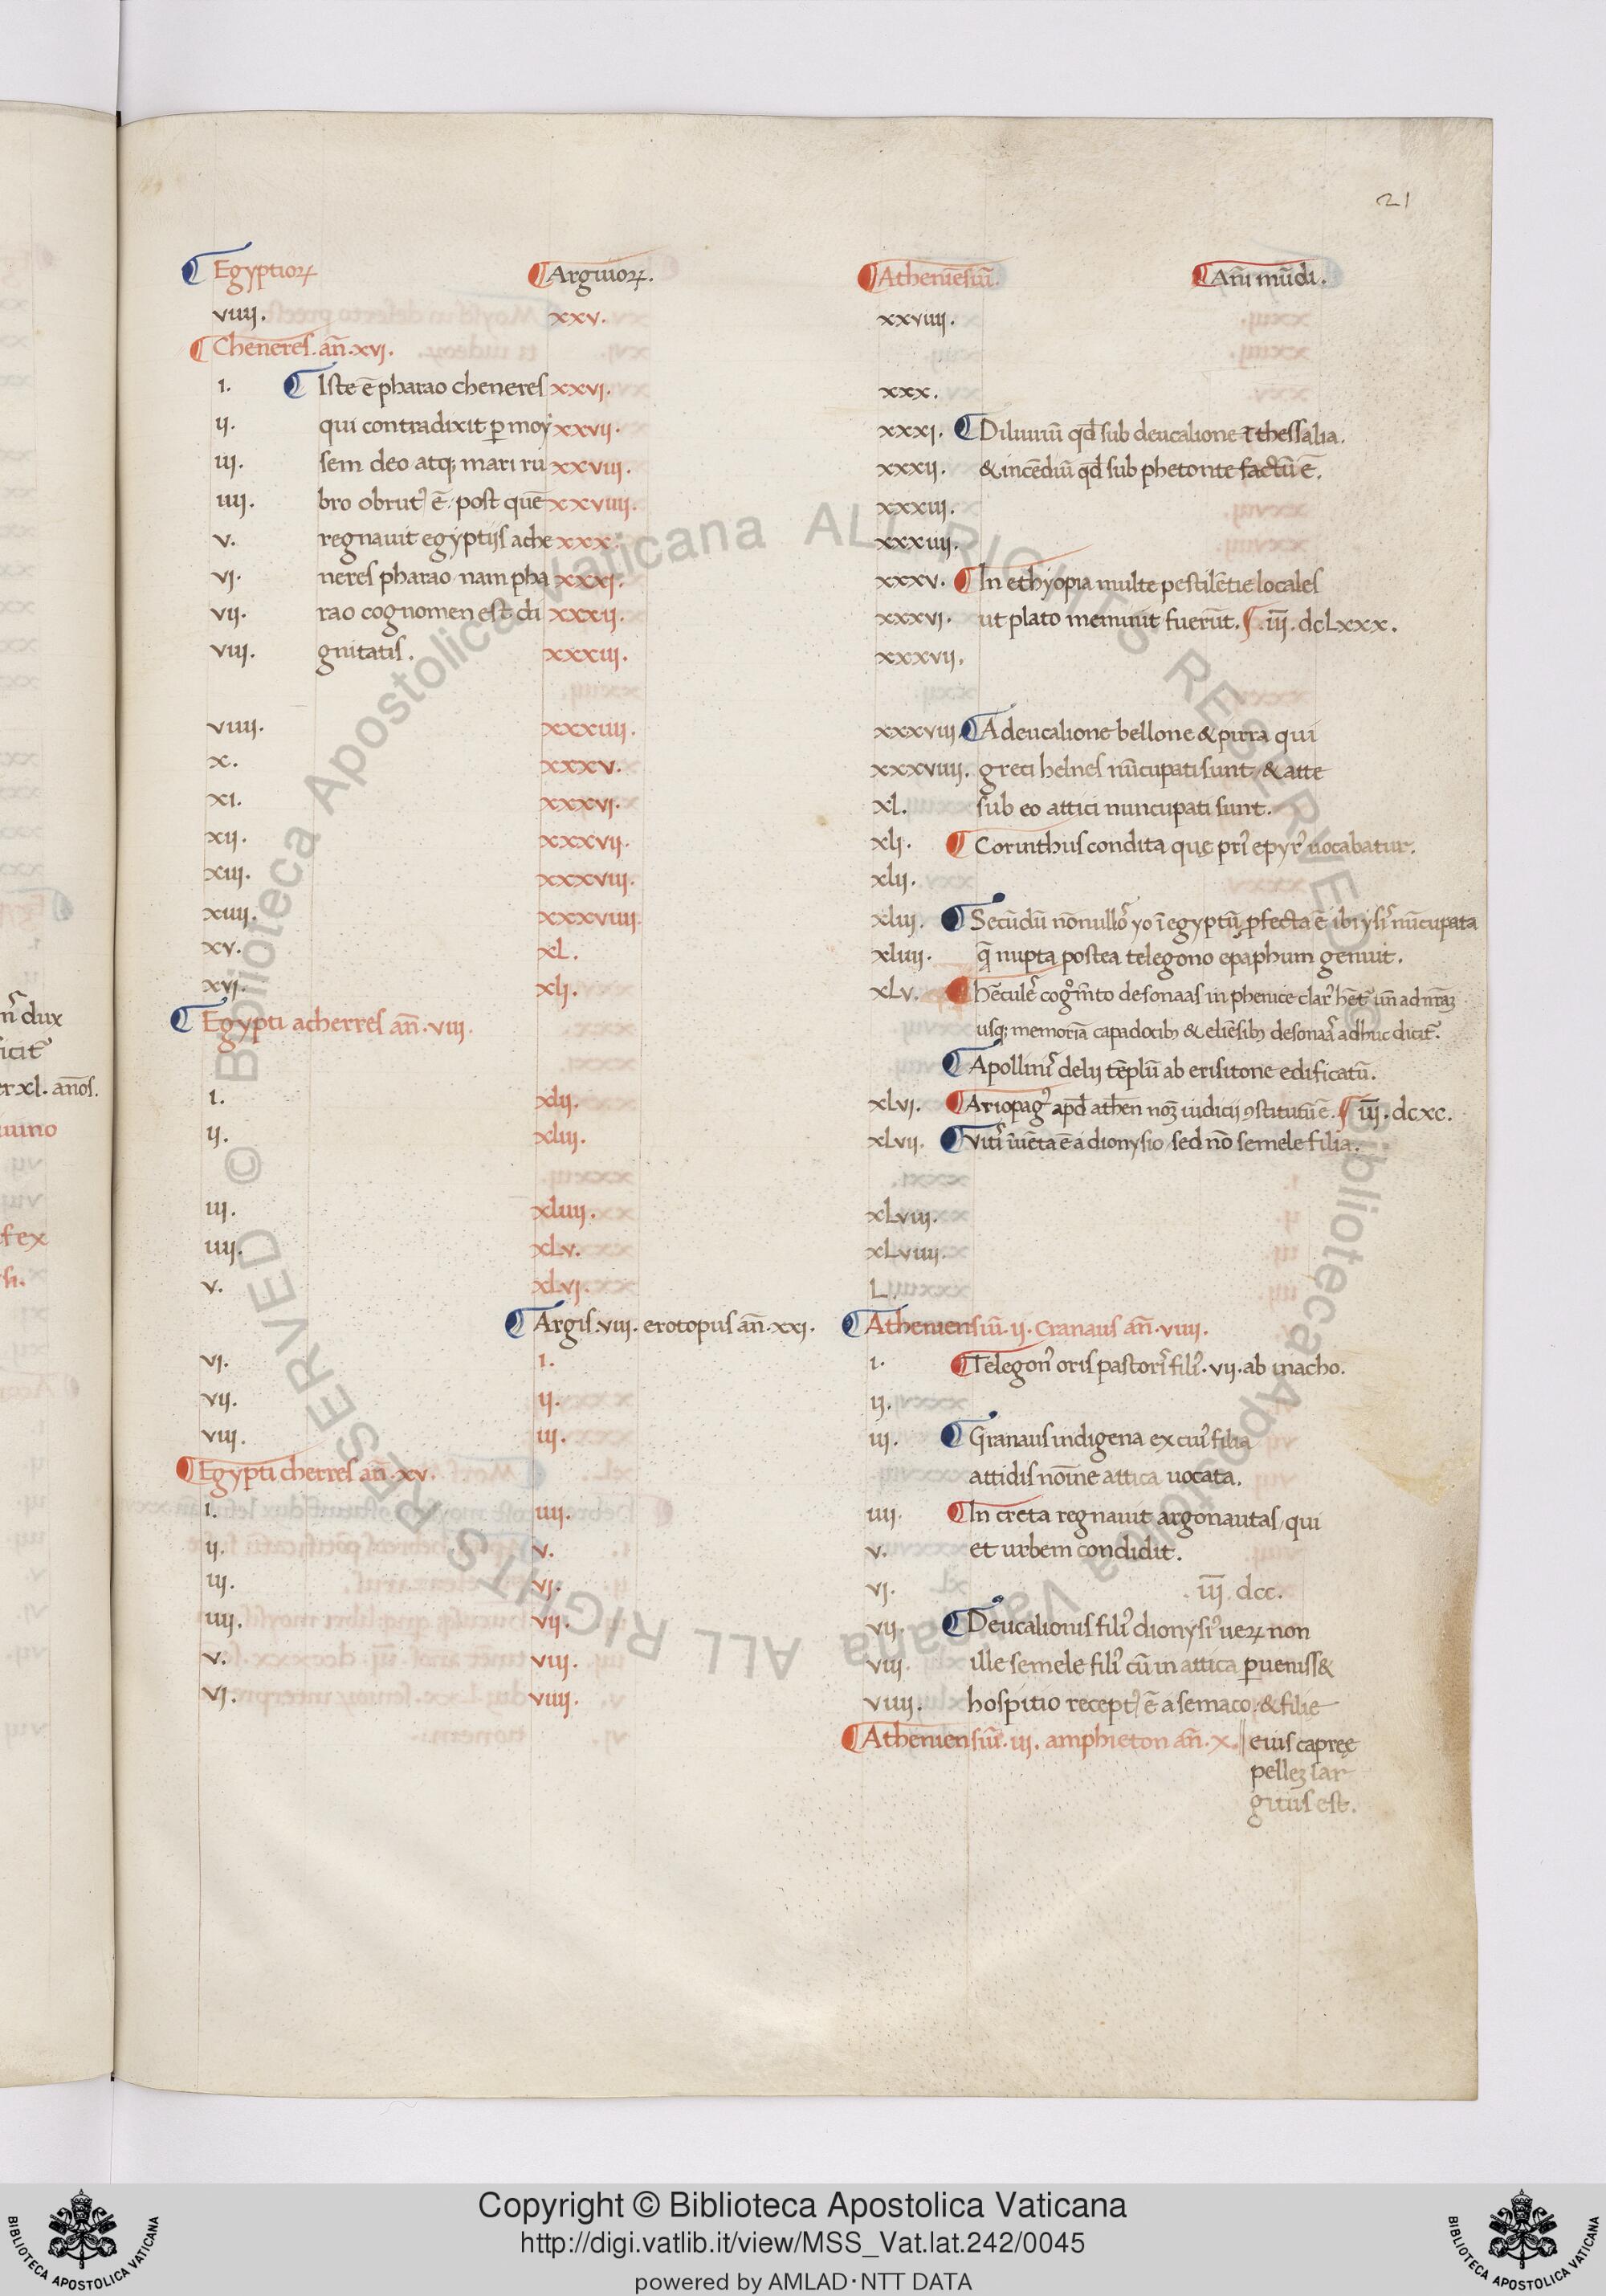 21
¶ Egyptioꝝ ¶ Argiuoꝝ. ¶ Atheniēsiū. ¶ Añi mūdi.
viiij. xxv. xxviiij.
¶ Cheneres. añ. xvj.
i. ¶ Iste ē pharao cheneres xxvj. xxx.
ij. qui contradixit ꝑ moy xxvij. xxxj. ¶ Diluuiū qd̄ sub deucalione ī thessalia.
iij. sem deo atq; mari ru xxviij. xxxij. & incēdiū qd̄ sub phetonte factū ē.
iiij. bro obrut᾽ ē. post quē xxviiij. xxxiij.
v. regnauit egyptijs ache xxx. xxxiiij.
vj. neres pharao nam pha xxxj. xxxv. ¶ In ethyopia multe pestilētie locales
vij. rao cognomen est di xxxij. xxxvj. ut plato meminit fuerūt. ¶ .iij̄. dcLxxx.
viij. gnitatis. xxxiij. xxxvij.
viiij. xxxiiij. xxxviij. ¶ A deucalione bellone & pirra qui
x. xxxv. xxxviiij. greci helnes nūcupati sunt & atte
xi. xxxvj. xL. sub eo attici nuncupati sunt.
xij. xxxvij. xlj. ¶ Corinthus condita quę pri᾽ epyr᾽ uocabatur.
xiij. xxxviij. xlij.
xiiij. xxxviiij. xliij. ¶ Secūdū nōnullo᾽ yo ī egyptū ꝓfecta ē ibi ysi᾽ nūcupata
xv. xL. xliiij. q̄ nupta postea telegono epaphum genuit.
xvj. xlj. xLv. ¶ hēcule᾽ cog̊m̄to desonaas in phenice clar᾽ hēt᾽ un̄ ad nr̄aꝫ
¶ Egypti acherres añ. viij. usq; memoriā capadocibꝫ & eliēsibꝫ desonaa᾽ adhuc dicit᾽.
¶ Apollini᾽ delij tēplū ab erisitone edificatū.
i. xLij. xLvj. ¶ Ariopag᾽ apd̄ athen noꝫ iudicij ꝯstitutū ē. ¶ iij̄. dcxc.
ij. xLiij. xLvij. ¶ Viti᾽ īuēta ē a dionysio sed nō semele filia.
iij. xLiiij. xLviij.
iiij. xLv. xLviiij.
v. xLvj. L.
¶ Argis. viij. erotopus añ. xxj. ¶ Atheniensiū. ij. cranaus añ. viiij.
vj. i. i. ¶ Telegon᾽ oris pastori᾽ fili᾽. vij. ab inacho.
vij. ij. ij.
viij. iij. iij. ¶ Granaus indigena ex cui᾽ filia
¶ Egypti cherres añ. xv. attidis noīne attica uocata.
i. iiij. iiij. ¶ In creta regnauit argonautas, qui
ij. v. v. et urbem condidit.
iij. vj. vj. iij̄. dcc.
iiij. vij. vij. ¶ Deucalionis fili᾽ dionysi᾽ ueꝝ non
v. viij. viij. ille semele fili᾽ cū in attica ꝑueniss&
vj. viiij. viiij. hospitio recept᾽ ē a semaco. & filie
¶ Atheniensiū. iij. amphieton añ. x. eius capreę
pelleꝫ lar
gitus est.
n᾽ dux
icit᾽
er xl. anōs.
iuino
fex
Copyright © Biblioteca Apostolica Vaticana
http://digi.vatlib.it/view/MSS_Vat.lat.242/0045
powered by AMLAD·NTT DATA
BIBLIOTECA APOSTOLICA VATICANA
BIBLIOTECA APOSTOLICA VATICANA
© Biblioteca Apostolica Vaticana ALL RIGHTS RESERVED
© Biblioteca Apostolica Vaticana ALL RIGHTS RESERVED